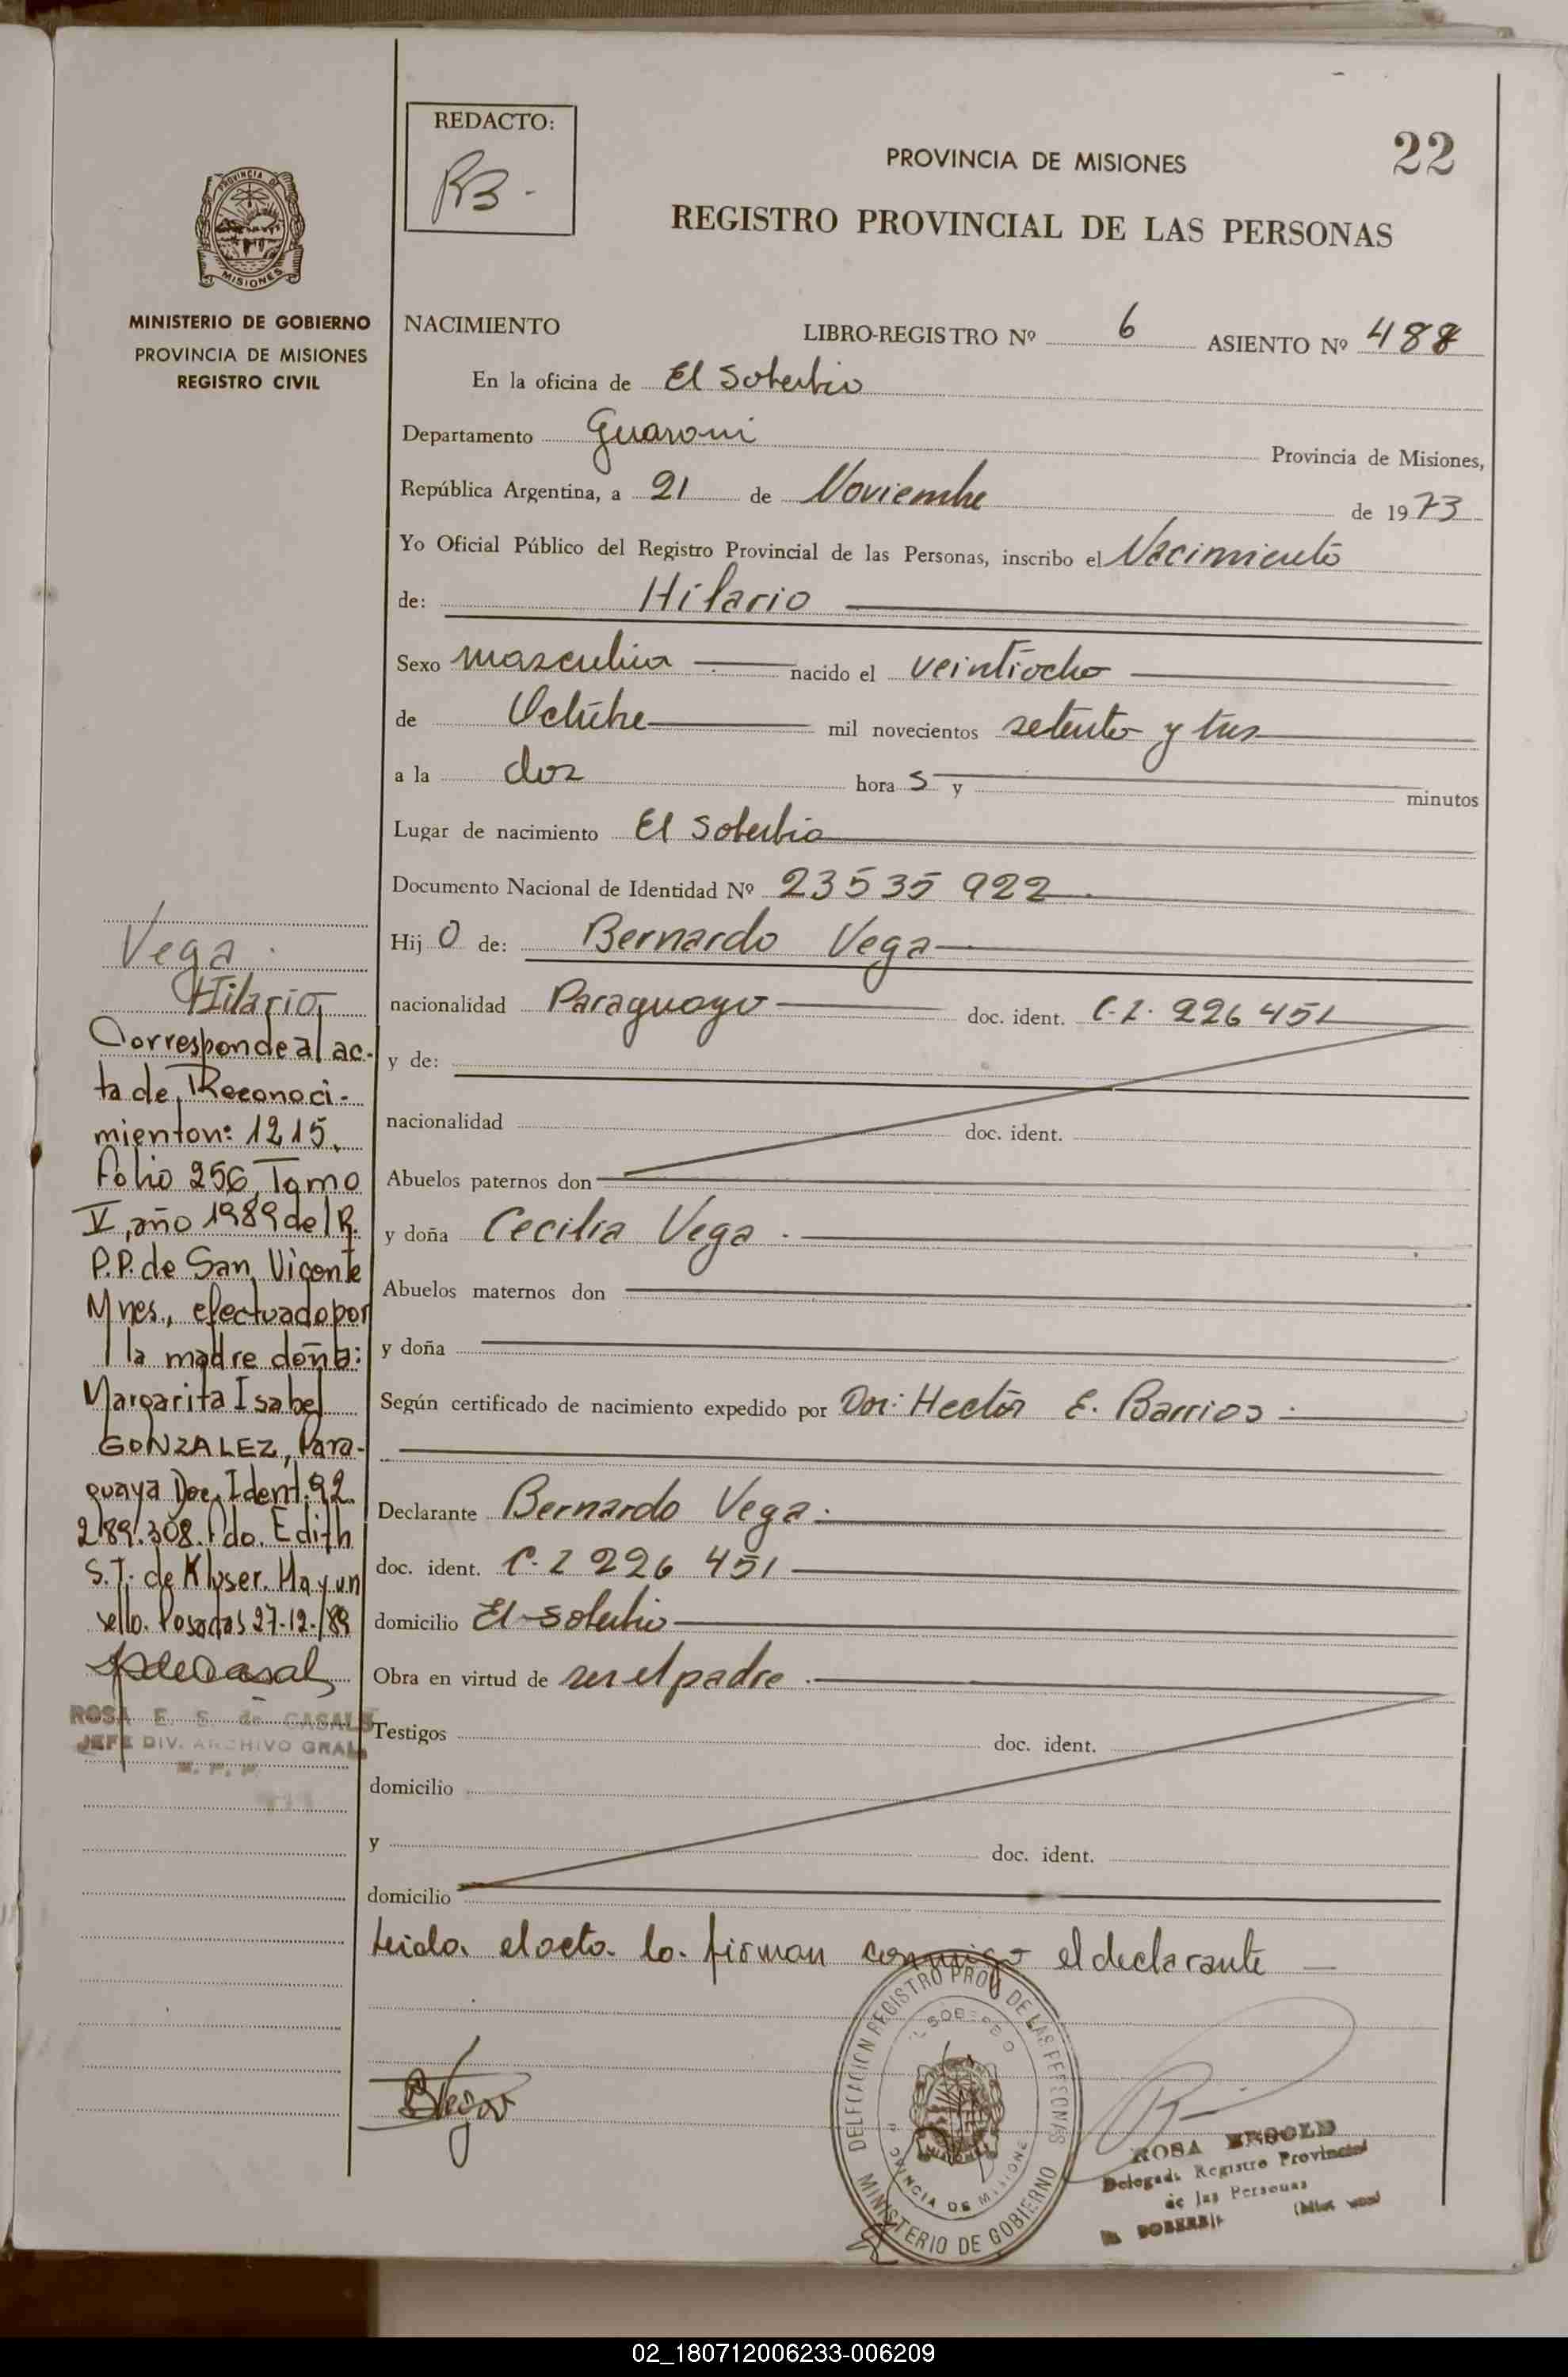 22
REDACTO:
RB -
PROVINCIA DE MISIONES
REGISTRO PROVINCIAL DE LAS PERSONAS
PROVINCIA DE
MISIONES
MINISTERIO DE GOBIERNO
PROVINCIA DE MISIONES
REGISTRO CIVIL
NACIMIENTO LIBRO-REGISTRO Nº 6 ASIENTO Nº 488
En la oficina de El Soberbio
Departamento Guarani Provincia de Misiones,
República Argentina, a 21 de Noviembre de 1973
Yo Oficial Público del Registro Provincial de las Personas, inscribo el Nacimiento
de: Hilario
Sexo masculino nacido el veintiocho
de Octubre mil novecientos setenta y tres
a la dos hora s y minutos
Lugar de nacimiento El Soberbio
Documento Nacional de Identidad Nº 23535 922
Hij o de: Bernardo Vega
nacionalidad Paraguayo doc. ident. C.I. 226 451
y de:
nacionalidad doc. ident.
Abuelos paternos don
y doña Cecilia Vega
Abuelos maternos don
y doña
Según certificado de nacimiento expedido por Dr: Hector E. Barrios
Declarante Bernardo Vega
doc. ident. C.I 226 451
domicilio El Soberbio
Obra en virtud de ser el padre
Testigos doc. ident.
domicilio
y doc. ident.
domicilio
Leida el acta la firman conmigo el declarante
Vega
Hilario
Corresponde al ac-
ta de Reconoci-
miento n: 1215,
Folio 256, Tomo
V, año 1989 del R.
P.P. de San Vicente
Mnes., efectuado por
la madre doña:
Margarita Isabel
GONZALEZ, Para-
guaya Doc. Ident. 92.
289.308. Fdo. Edith
S.T. de Klyser. Hay un
sello. Posadas 27-12-/89
ROSA E. S. de CASALS
JEFE DIV. ARCHIVO GRAL.
R. P. P.
BVega
DELEGACION REGISTRO PROV DE LAS PERSONAS
EL SOBERBIO
PROVINCIA DE MISIONES
MINISTERIO DE GOBIERNO
ROSA ENGOLD
Delegada Registro Provincial
de las Personas
EL SOBERBIO (Mnes.)
02_180712006233-006209